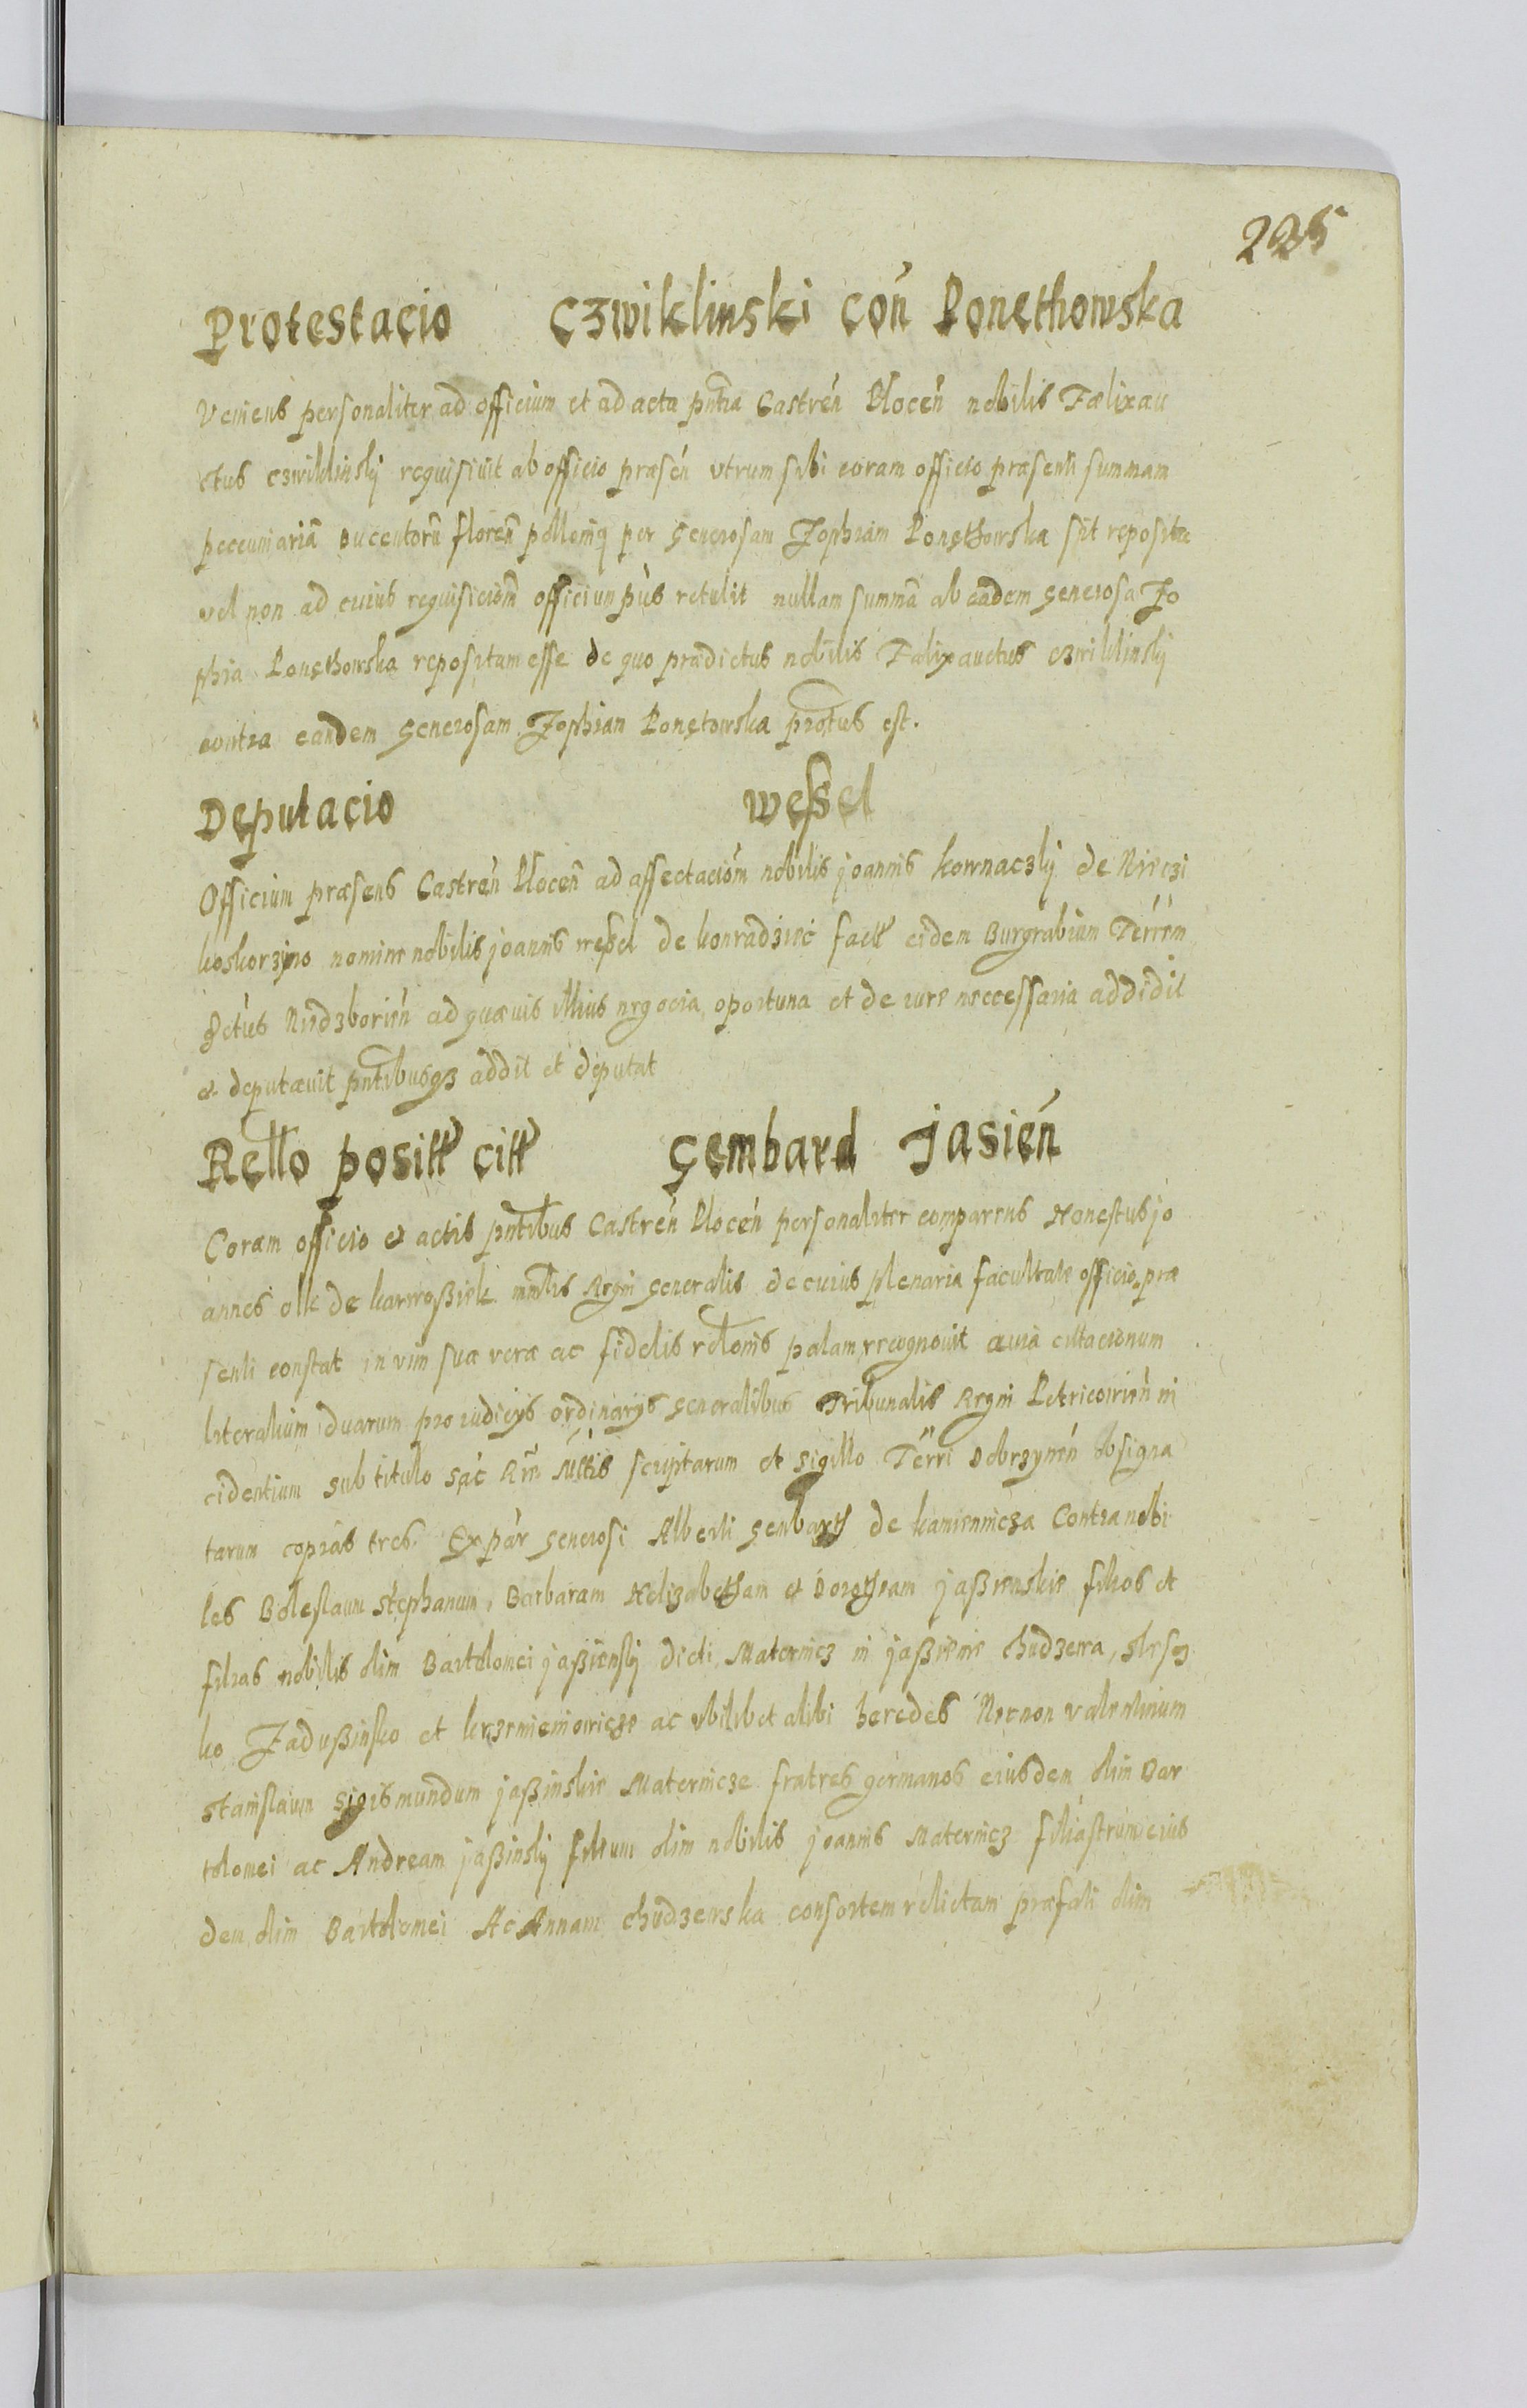 225
Protestacio Czwiklinski con Ponęthowska
Veniens personaliter ad officium et ad acta pntia Castren Plocen nobilis Fælixau
ctus czwiklinskÿ requisiuit ab officio præsen vtrum sibi coram officio præsenti summam
pecuniariã ducentorũ floreñ pollemq per generosam Zophiam Ponęthowska sit reposita
vel non ad cuius requisicioñ officium pńs retulit nullam summã ab eadem generosa Zo
phia Ponęthowska repositam esse de quo prædictus nobilis Fælixauctus czwiklinskÿ
contra eandem generosam Zophian Ponętowska protus est.
Deputacio weßel
Officium præsens Castren Plocen ad affectacióm nobilis joannis kownaczkÿ de
koskorzÿno nomine nobilis joannis weßel de konradziec fact eidem Burgrabium Terrem
Niedzborień ad quævis illius negocia oportuna et de iure neccessaria addidit
et deputavit pntibusqz addit et deputat
Rello positt citt Gembard Jasień
Coram officio et actis pntibus Castren Plocen personaliter comparens Honestus jo
annes olk de karwoßiek mnlis Regni generalis de cuius plenaria facultate officio præ
senti constat in vim suæ veræ ac fidelis relonis palam recognouit quia cittacionum
literalium duarum pro iudicÿs ordinarÿs generalibus Tribunalis Regni Petricoirień in
cidentium sub titulo Sac Rm Mttis scriptarum et sigillo Terri Dobrzynen obsigna
tarum copias tres Ex pár generosi Alberti Gembarth de kamiennicza Contra nobi
les Boleslaum Stephanum, Barbaram Helizabetham et Dorotheam jaßienskie filios et
filias nobilis olim Bartolomei jaßienskÿ dicti Maternicz in jaßienie chudzewa,
ko Zadußinsko et krzemieniowicze ac vbilibet alibi heredes Necnon valentinum
stanislaum Sigismundum jaßinskie Maternicze fratres germanos eiusdem olim Bar
tolomei ac Andream jaßinskÿ filium olim nobilis joannis Maternicz filiastrum eius
dem olim Bartolomei Ac Annam chudzewska consortem relictam præfati olim